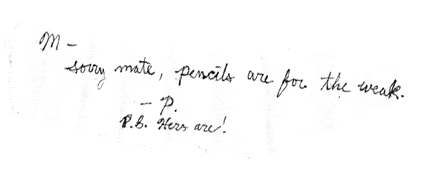 M -
sorry mate, pencils are for the weak.
- P.
P.S. Hers are!